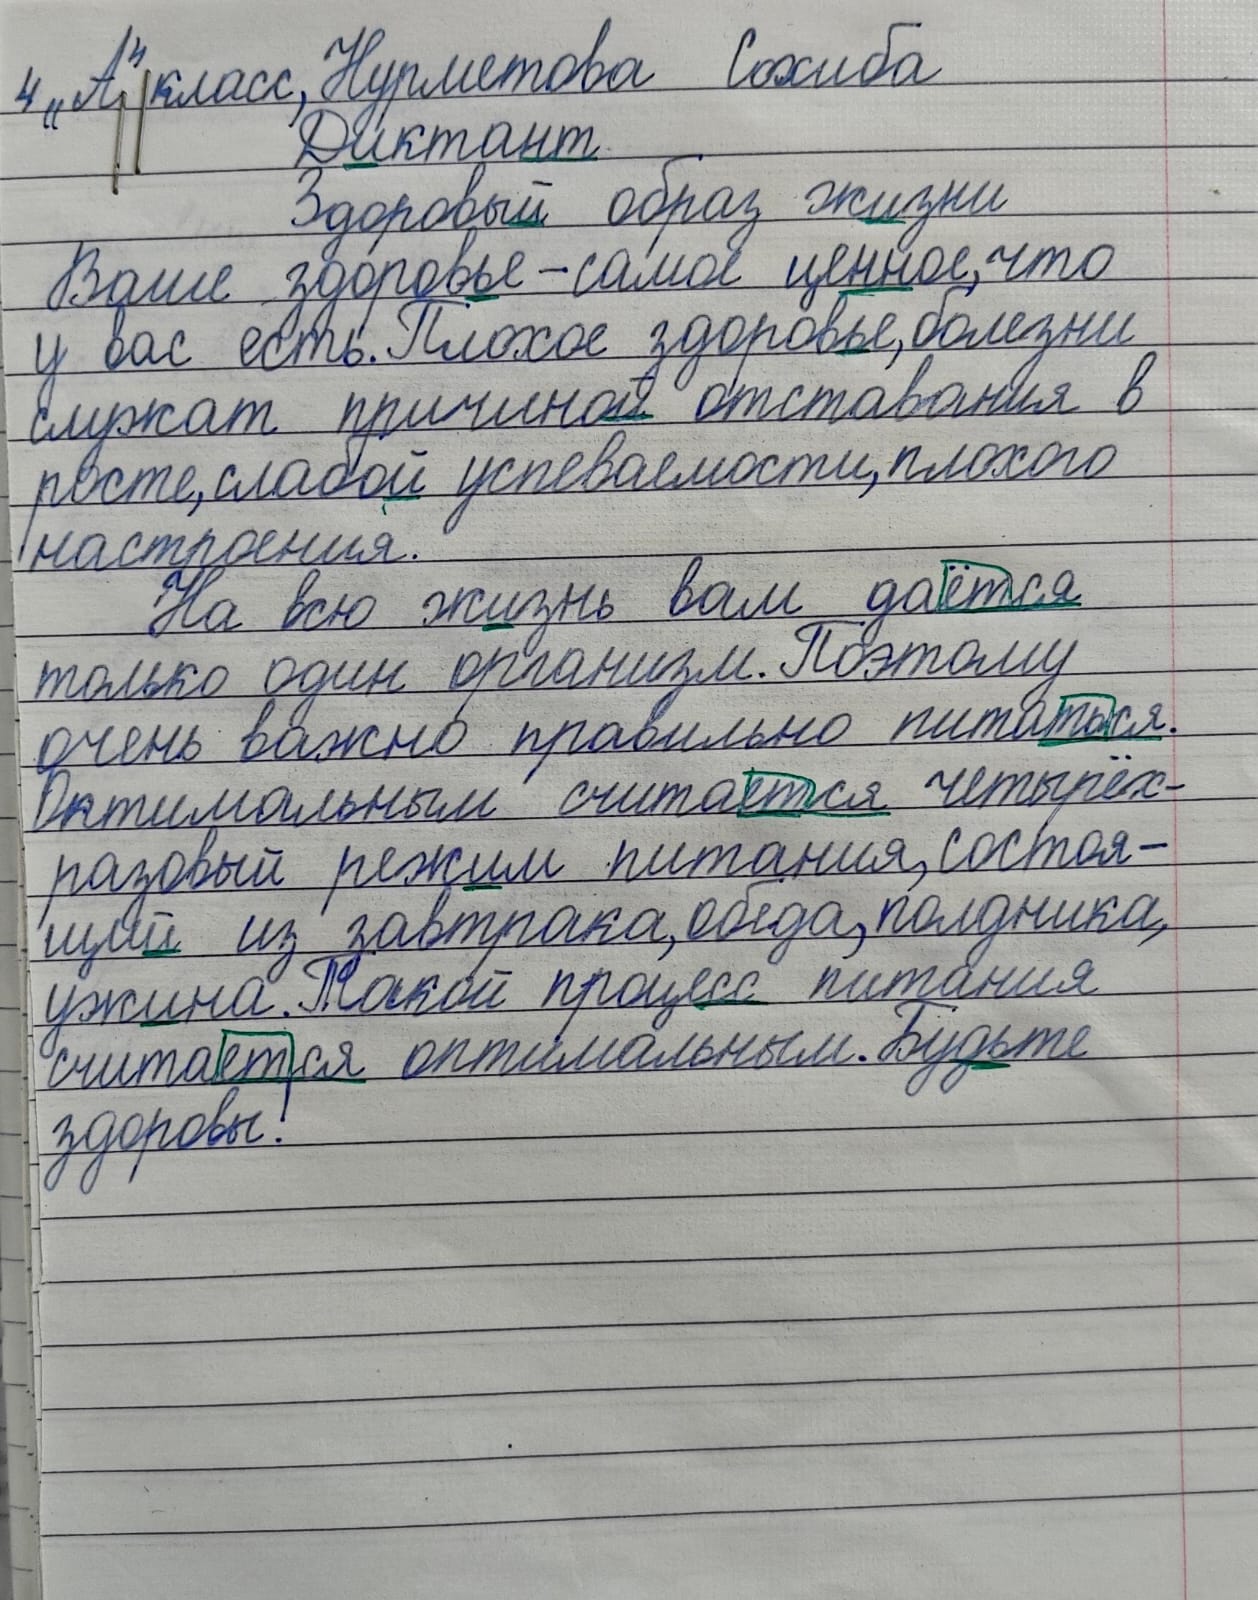 4 „А" класс, Нурметова Сохиба
Диктант
Здоровый образ жизни
Ваше здоровье – самое ценное, что
у вас есть. Плохое здоровье, болезни
служат причиной отставания в
росте, слабой успеваемости, плохого
настроения.
На всю жизнь вам даётся
только один организм. Поэтому
очень важно правильно питаться.
Оптимальным считается четырёх-
разовый режим питания, состоя-
щий из завтрака, обеда, полдника,
ужина. Такой процесс питания
считается оптимальным. Будьте
здоровы!